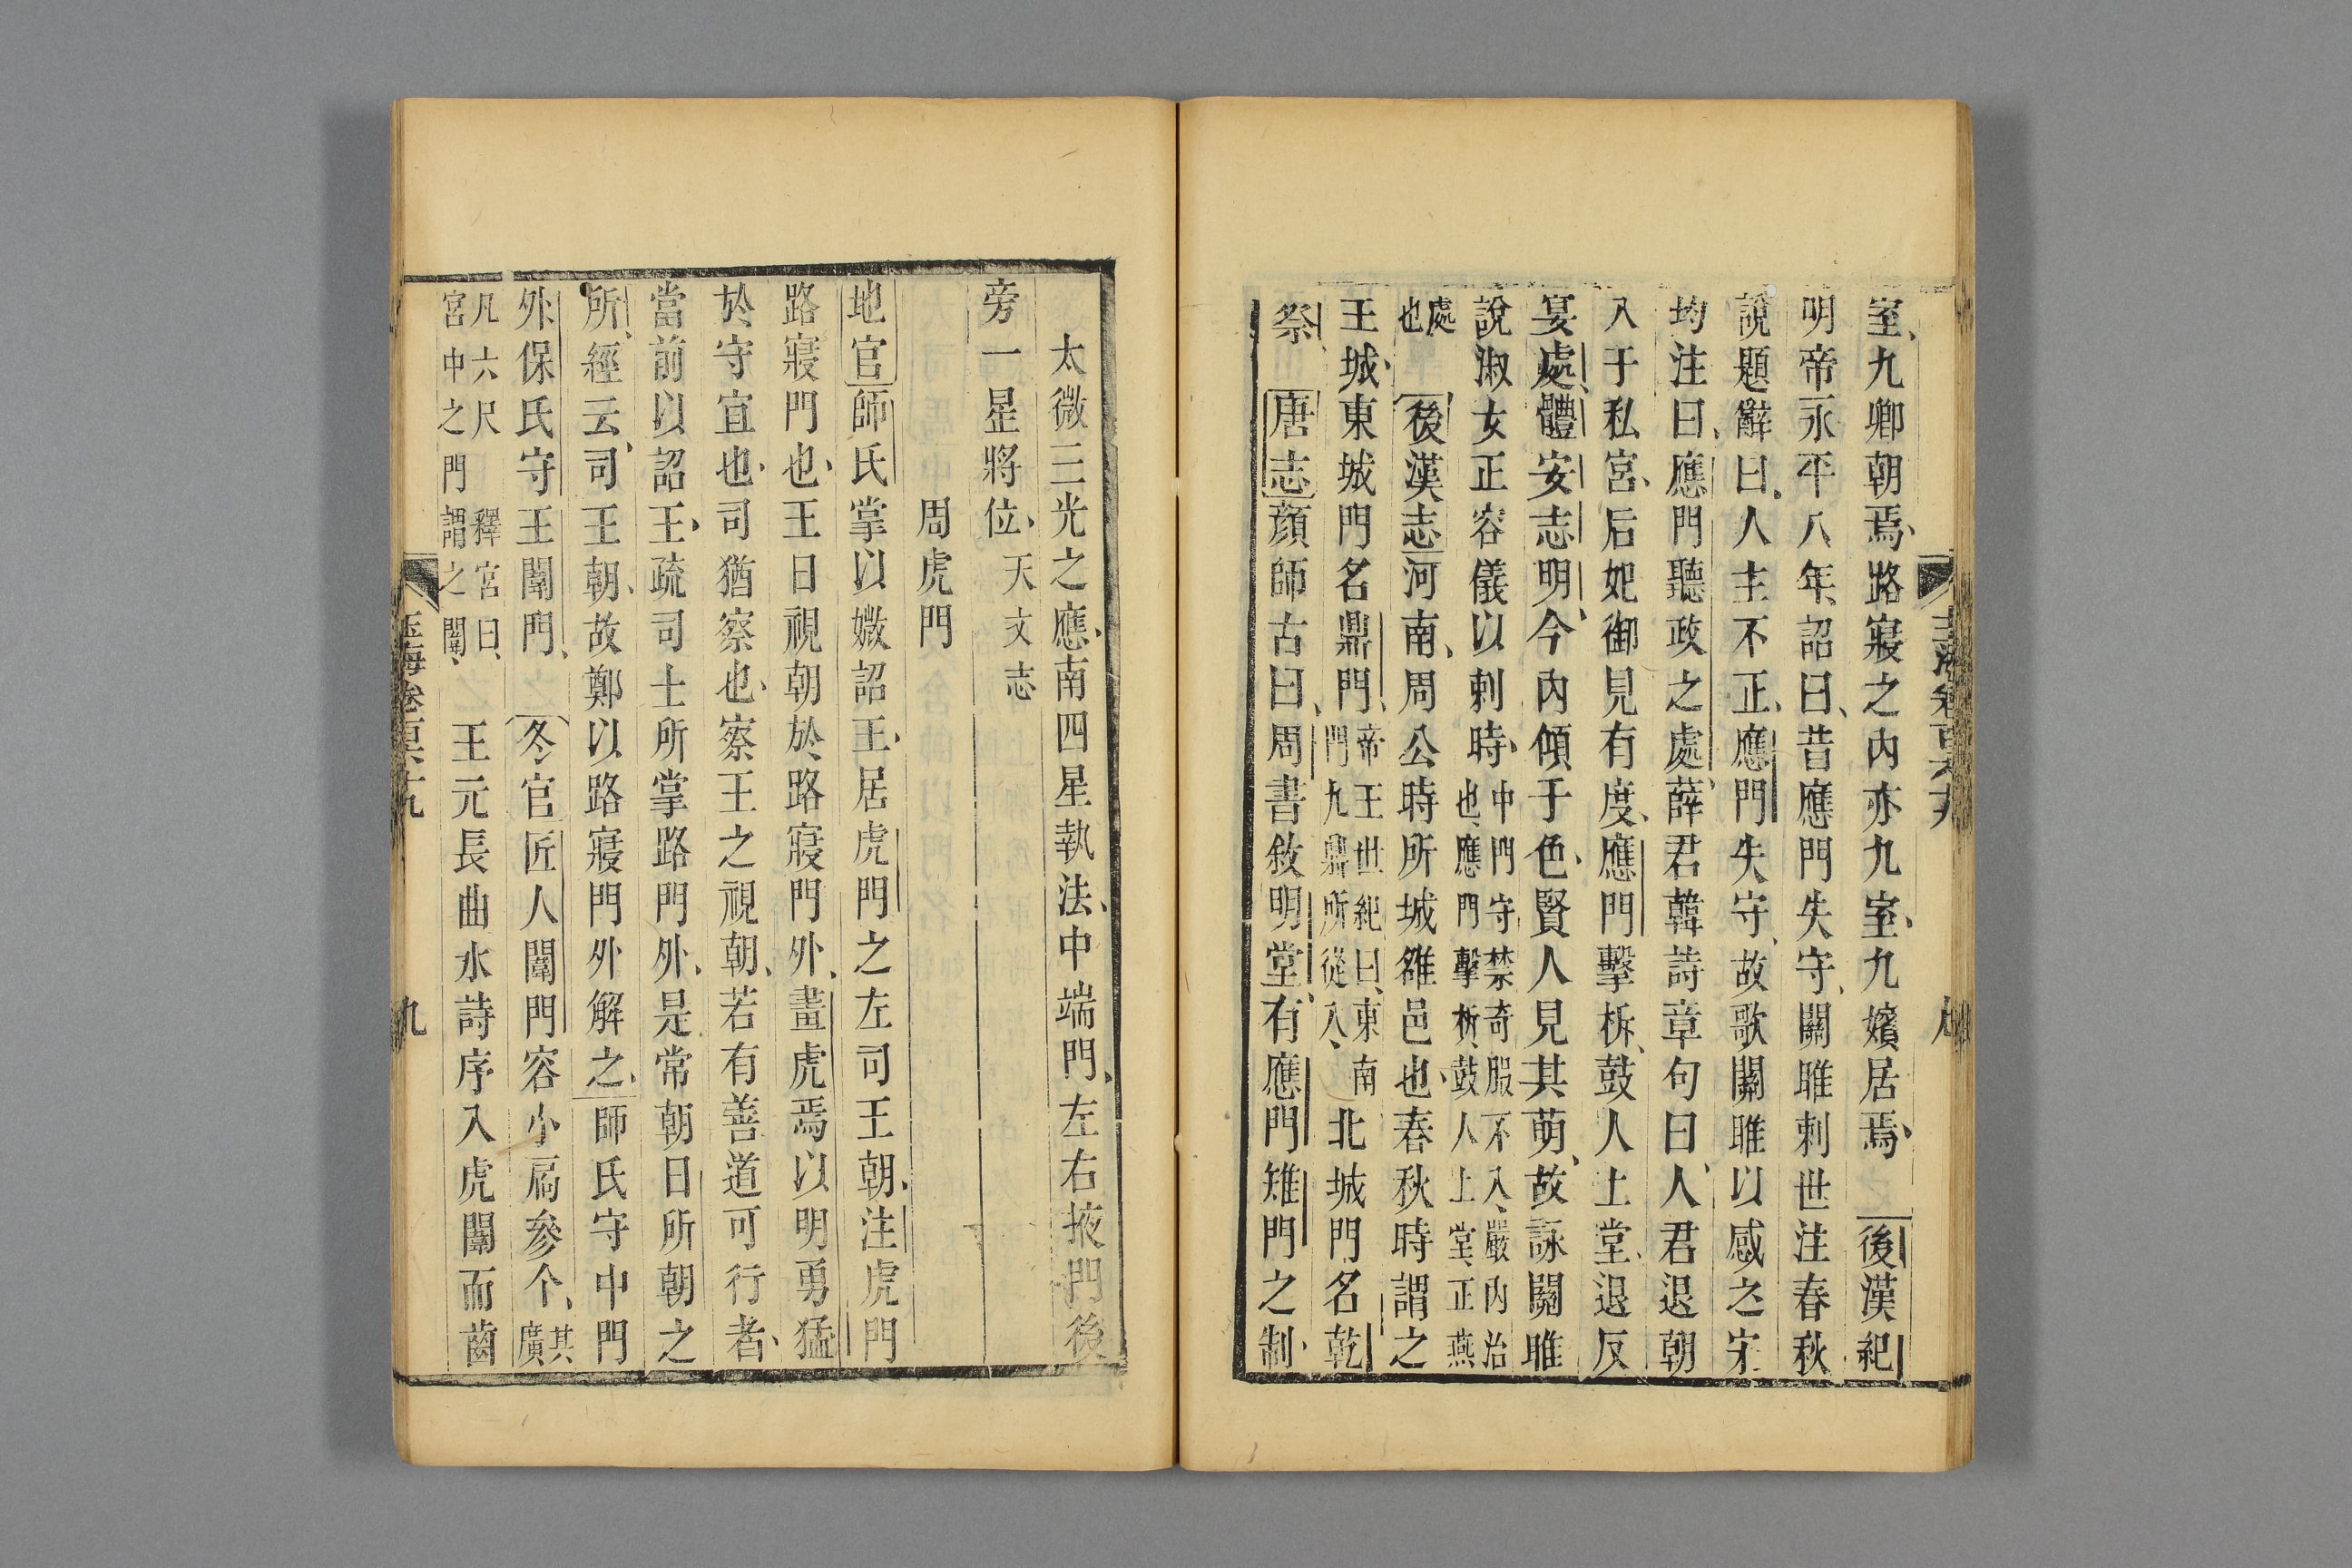 室九卿朝焉路寢之內亦九室九嬪居焉 後漢紀
明帝永平八年詔曰昔應門失守關雎刺世注春秋
說題辭曰人主不正應門失守故歌關雎以感之宋
均注曰應門聽政之處薛君韓詩章句曰人君退朝
入于私宮后妃御見有度應門擊柝鼓人上堂退反
宴處體安志明今內傾于色賢人見其萌故詠關雎
說淑女正容儀以刺時中門守禁奇服不入嚴內治
也應門擊柝鼓人上堂正燕
處
也 後漢志河南周公時所城雒邑也春秋時謂之
王城東城門名鼎門帝王世紀曰東南
門九鼎所從入北城門名乾
祭 唐志顏師古曰周書敘明堂有應門雉門之制
玉海卷百六十九
太微三光之應南四星執法中端門左右掖門後
旁一星將位天文志
周虎門
地官師氏掌以媺詔王居虎門之左司王朝注虎門
路寢門也王日視朝於路寢門外畫虎焉以明勇猛
於守宜也司猶察也察王之視朝若有善道可行者
當前以詔王疏司士所掌路門外是常朝日所朝之
所經云司王朝故鄭以路寢門外解之師氏守中門
外保氏守王闈門 冬官匠人闈門容小扃參个其
廣
凡六尺 釋宮曰
宮中之門謂之闈 王元長曲水詩序入虎闈而齒
玉海卷百六十九
九